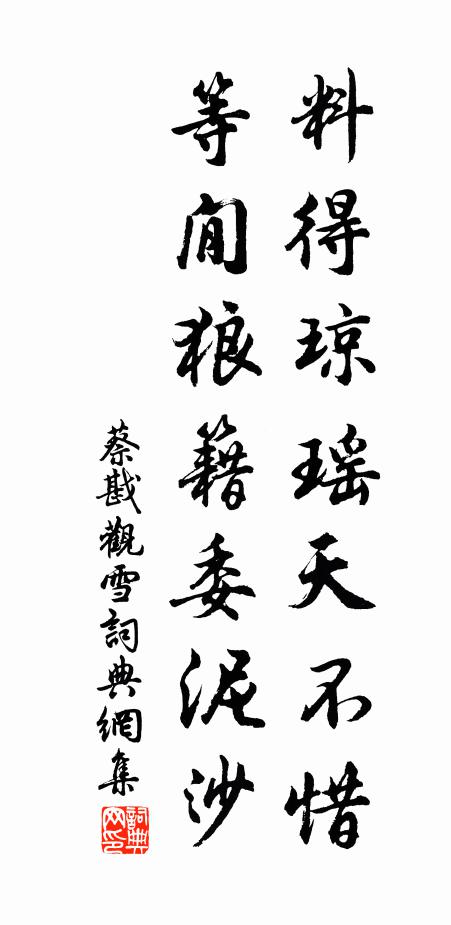 料得琼瑶天不惜
等閒狼籍委泥沙
蔡戡觀雪詞典網集
詞典网印